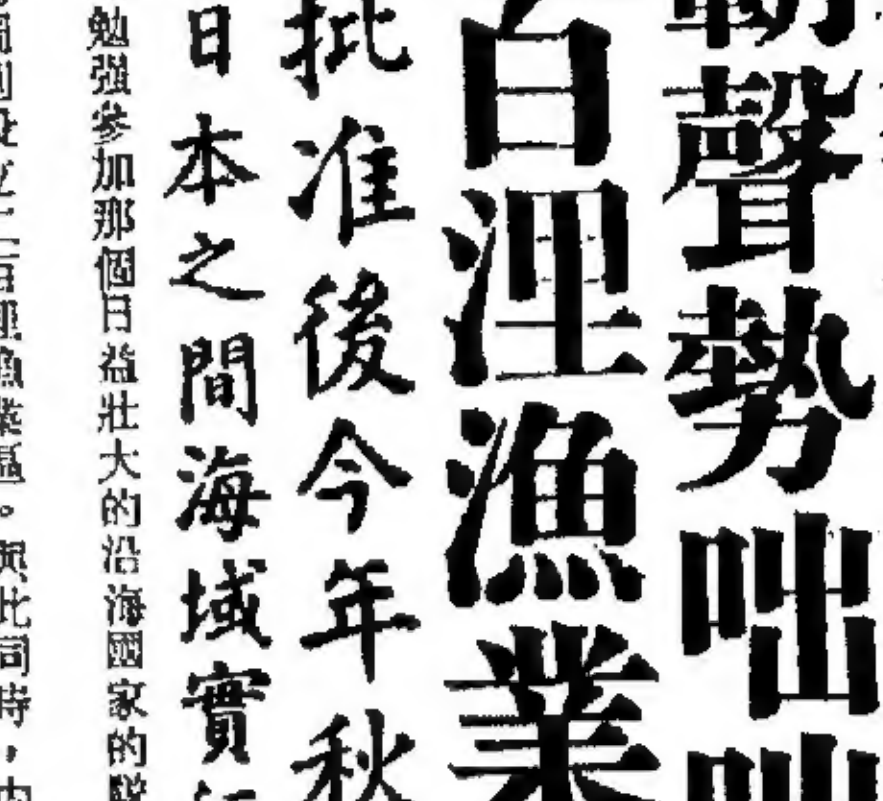 聲勢咄
百浬漁業
批准後今年秋
日本之間海域實
勉强參加那個日益壯大的沿海國家的
漁業區。與此同時，